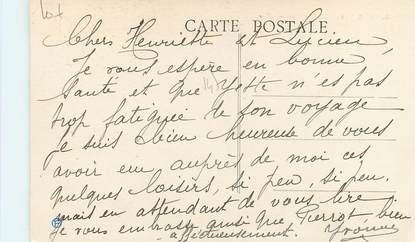 CARTE POSTALE
Chers Henriette et Lucien,
Je vous espère en bonne
santé et que n'es pas
trop fatiguée de son voyage
je suis bien heureuse de vous
avoir eu auprès de moi ces
quelques loisirs, si peu, si peu.
mais en attendant de vous lire
je vous embrasse ainsi que Pierrot, bien
affectueusement. Yvonne